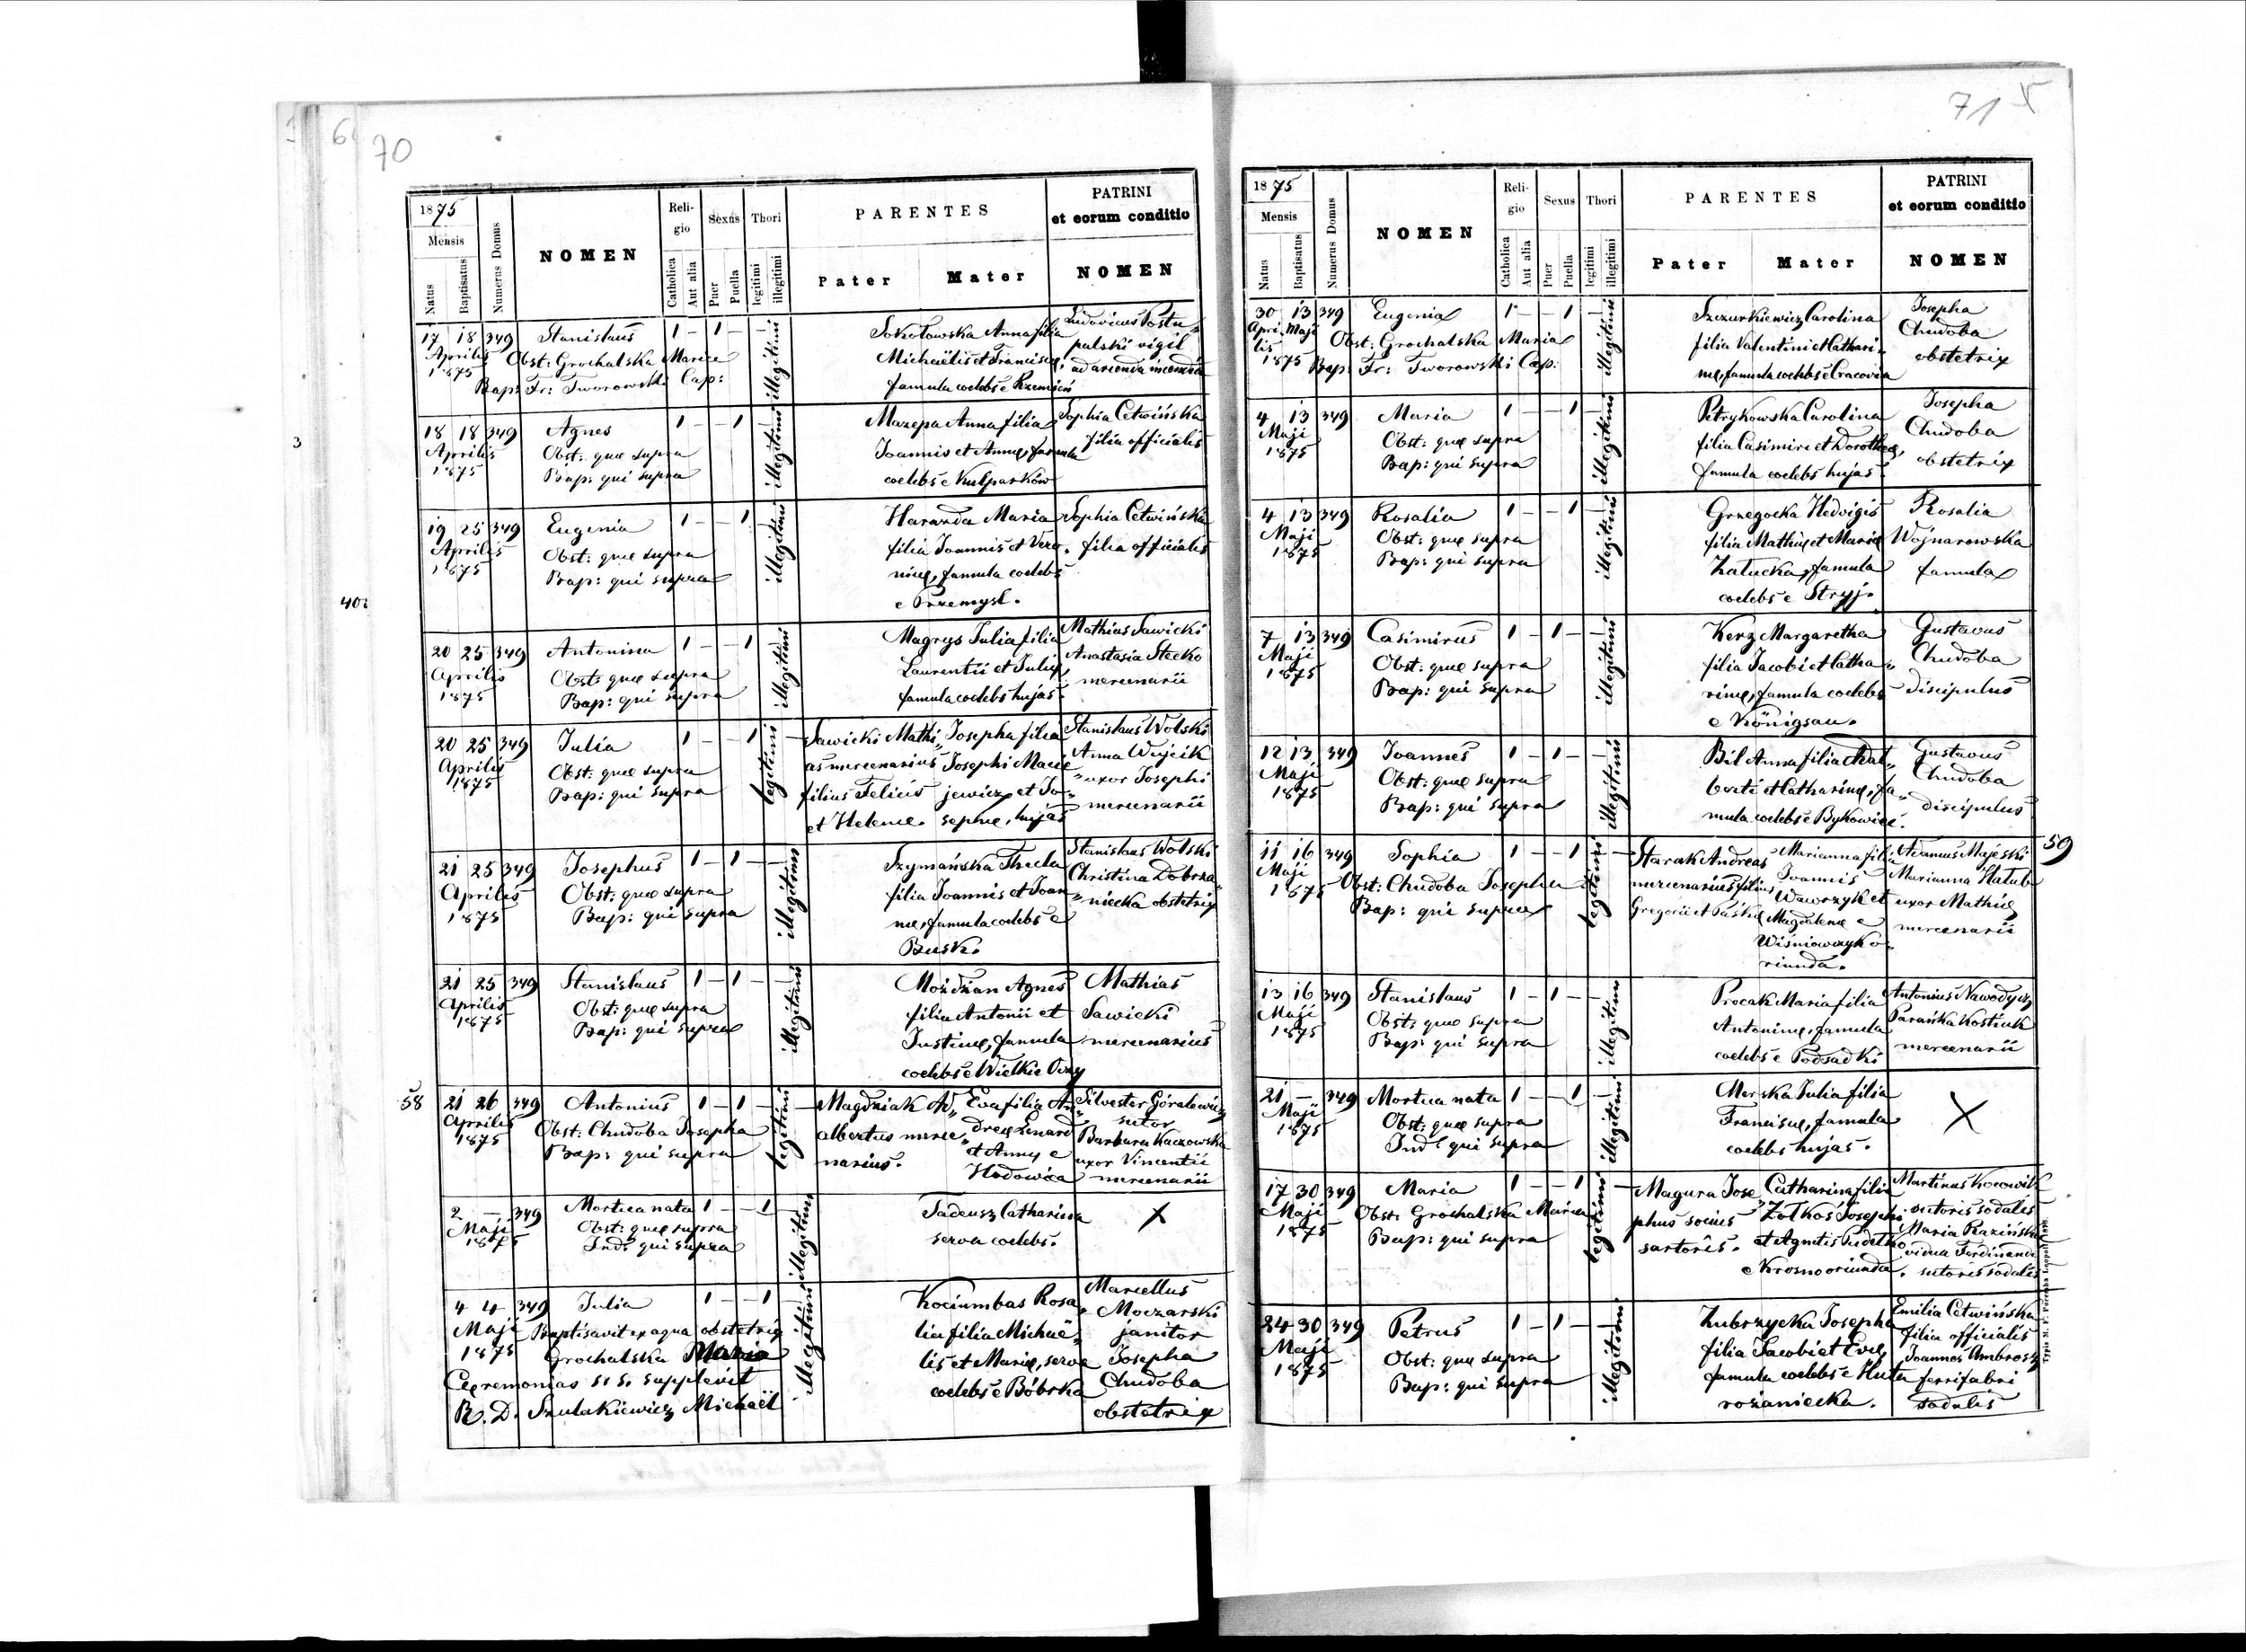 70
1875
Mensis
Natus
Baptisatus
Numerus Domus
NOMEN
Reli-
gio
Catholica
Aut alia
Sexus
Puer
Puella
Thori
legitimi
illegitimi
PARENTES
Pater
Mater
PATRINI
et eorum conditio
NOMEN
17 18 349
Aprilis
1875
Stanislaus
Obst: Grochalska Maria
Bap: Fr: Tworowski Cap:
1 – 1 –
illegitimi
Sokołowska Anna filia
Michaëlis et Franciscæ,
famula coelebs e Rzemień
Ludovicus Postu„
palski vigil
18 18 349
Aprilis
1875
Agnes
Obst: quæ supra
Bap: qui supra
1 – – 1
illegitimi
Mazepa Anna filia
Joannis et Annæ, famula
coelebs e Kulparków
Sophia Cetwińska
filia officialis
19 25 349
Aprilis
1875
Eugenia
Obst: quæ supra
Bap: qui supra
1 – – 1
illegitimi
Haranda Maria
filia Joannis et Vero„
nicæ, famula coelebs
e Przemyśl.
Sophia Cetwińska
filia officialis
20 25 349
Aprilis
1875
Antonina
Obst: quæ supra
Bap: qui supra
1 – – 1
illegitimi
Magrys Julia filia
Laurentii et Juliæ,
famula coelebs hujas.
Mathias Sawicki
Anastasia Stecko
mercenarii
20 25 349
Aprilis
1875
Julia
Obst: quæ supra
Bap: qui supra
1 – – 1
legitimi
Sawicki Mathi„
as mercenarius
filius Felicis
et Helenæ.
Josepha filia
Josephi Macie
jewicz et Jo„
sephæ, hujas
Stanislaus Wolski
Anna Wujcik
uxor Josephi
mercenarii
21 25 349
Aprilis
1875
Josephus
Obst: quæ supra
Bap: qui supra
1 – 1 –
illegitimi
Szymańska Thecla
filia Joannis et Joan
næ, famula coelebs e
Busk.
Stanislaus Wolski
Christina Dobrza„
niecka obstetrix
21 25 349
Aprilis
1875
Stanislaus
Obst: quæ supra
Bap: qui supra
1 – 1 –
illegitimi
Możdżan Agnes
filia Antonii et
Justinæ, famula
coelebs e Wielkie Oczy
Mathias
Sawicki
mercenarius
58
21 26 349
Aprilis
1875
Antonius
Obst: Chudoba Josepha
Bap: qui supra
1 – 1 –
legitimi
Magdziak Ad„
albertus merce„
narius.
Eva filia An„
dreæ Lenard
et Annæ e
Hodowica
Silvester Góralewicz
sutor
Barbara Kaczowska
uxor Vincentii
mercenarii
2 – 349
Maji
1875
Mortua nata
Obst: quæ supra
Ind: qui supra
1 – – 1
illegitimi
Tadeusz Catharina
serva coelebs.
X
4 4 349
Maji
1875
Julia
Baptisavit ex aqua obstetrix
Grochalska Maria
Cæremonias S. S. supplevit
R. D. Szulakiewicz Michaël
1 – – 1
illegitimi
Kociumbas Rosa„
lia filia Michaë„
lis et Mariæ, serva
coelebs e Bóbrka
Marcellus
Moczarski
janitor
Josepha
Chudoba
obstetrix
71
1875
Mensis
Natus
Baptisatus
Numerus Domus
NOMEN
Reli-
gio
Catholica
Aut alia
Sexus
Puer
Puella
Thori
legitimi
illegitimi
PARENTES
Pater
Mater
PATRINI
et eorum conditio
NOMEN
30 13 349
Apri Maji
lis
1875
Eugenia
Obst: Grochalska Maria
Bap: Fr: Tworowski Cap:
1 – – 1
illegitimi
Szczurkiewicz Carolina
filia Valentini et Cathari„
næ, famula coelebs e Cracovia
Josepha
Chudoba
obstetrix
4 13 349
Maji
1875
Maria
Obst: quæ supra
Bap: qui supra
1 – – 1
illegitimi
Petrykowska Carolina
filia Casimiri et Dorotheæ,
famula coelebs hujas.
Josepha
Chudoba
obstetrix
4 13 349
Maji
1875
Rosalia
Obst: quæ supra
Bap: qui supra
1 – – 1
illegitimi
Grzegocka Hedvigis
filia Mathiæ et Mariæ
Załucka, famula
coelebs e Stryj.
Rosalia
Wojnarowska
famula
7 13 349
Maji
1875
Casimirus
Obst: quæ supra
Bap: qui supra
1 – 1 –
illegitimi
Kerz Margaretha
filia Jacobi et Catha„
rinæ, famula coelebs
e Königsau.
Gustavus
Chudoba
discipulus
12 13 349
Maji
1875
Joannes
Obst: quæ supra
Bap: qui supra
1 – 1 –
illegitimi
Bil Anna filia Adal„
berti et Catharinæ, fa„
mula coelebs e Bykowice.
Gustavus
Chudoba
discipulus
59
11 16 349
Maji
1875
Sophia
Obst: Chudoba Josepha
Bap: qui supra
1 – – 1
legitimi
Starak Andreas
mercenarius filius
Gregorii et Paśkæ
Marianna filia
Joannis
Wawrzyk et
Magdalenæ e
Wiśniowczyk o„
riunda.
Adamus Majeski
Marianna Hałub
uxor Mathiæ
mercenarii
13 16 349
Maji
1875
Stanislaus
Obst: quæ supra
Bap: qui supra
1 – 1 –
illegitimi
Procak Maria filia
Antoninæ, famula
coelebs e Podsadki
Antonius Nawodycz
Parańka Kostiuk
mercenarii
21 – 349
Maji
1875
Mortua nata
Obst: quæ supra
Ind: qui supra
1 – – 1
illegitimi
Merska Julia filia
Franciscæ, famula
coelebs hujas.
X
17 30 349
Maji
1875
Maria
Obst: Grochalska Maria
Bap: qui supra
1 – – 1
legitimi
Magura Jose„
phus socius
sartoris.
Catharina filia
Żołkoś Josephi
et Agnetis Pudełko
e Krosno oriunda.
Martinus Kocowik
sutoris sodalis
Maria Razińska
vidua Ferdinandi
sutoris sodalis
24 30 349
Maji
1875
Petrus
Obst: quæ supra
Bap: qui supra
1 – 1 –
illegitimi
Zubrzycka Josepha
filia Jacobi et Evæ,
famula coelebs e Huta
rożaniecka.
Emilia Cetwińska
filia officialis
Joannes Ambrosz
ferrifabri
sodalis